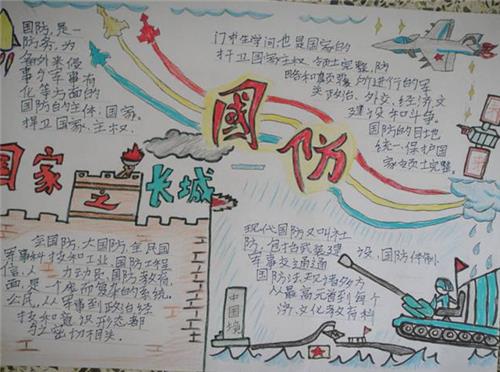 国防,是一
防务,为
备外来侵
事外军事有
化等方面的
国防的主体,国家。
捍卫国家、主权
门中生学问也是国家的
扞卫国家主权、领土完整,防
略和颠覆,所进行的军
类政治、外交、经济、文
建设和斗争。
国防的目地
统一,保护国
家领土完整。
國防
国家之长城
全国防,大国防,全民国
军事科技和工业,国防工程
信人、力动员、国防教育,
面是一个庞而复杂的系统。
公民,从军事到政治经
技和意识形态都
与之密切相关
现代国防又叫社
防,包括武装建设,国防体制
军事交通通
国防法
从最高元首到每个
济,文化教育科
中国境